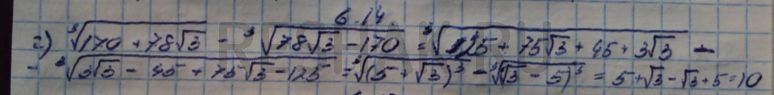 6.14
г) ∛(170 + 78√3) - ∛(78√3 - 170) = ∛(125 + 75√3 + 45 + 3√3) -
- ∛(3√3 - 45 + 75√3 - 125) = ∛(5 + √3)³ - ∛(√3 - 5)³ = 5 + √3 - √3 + 5 = 10